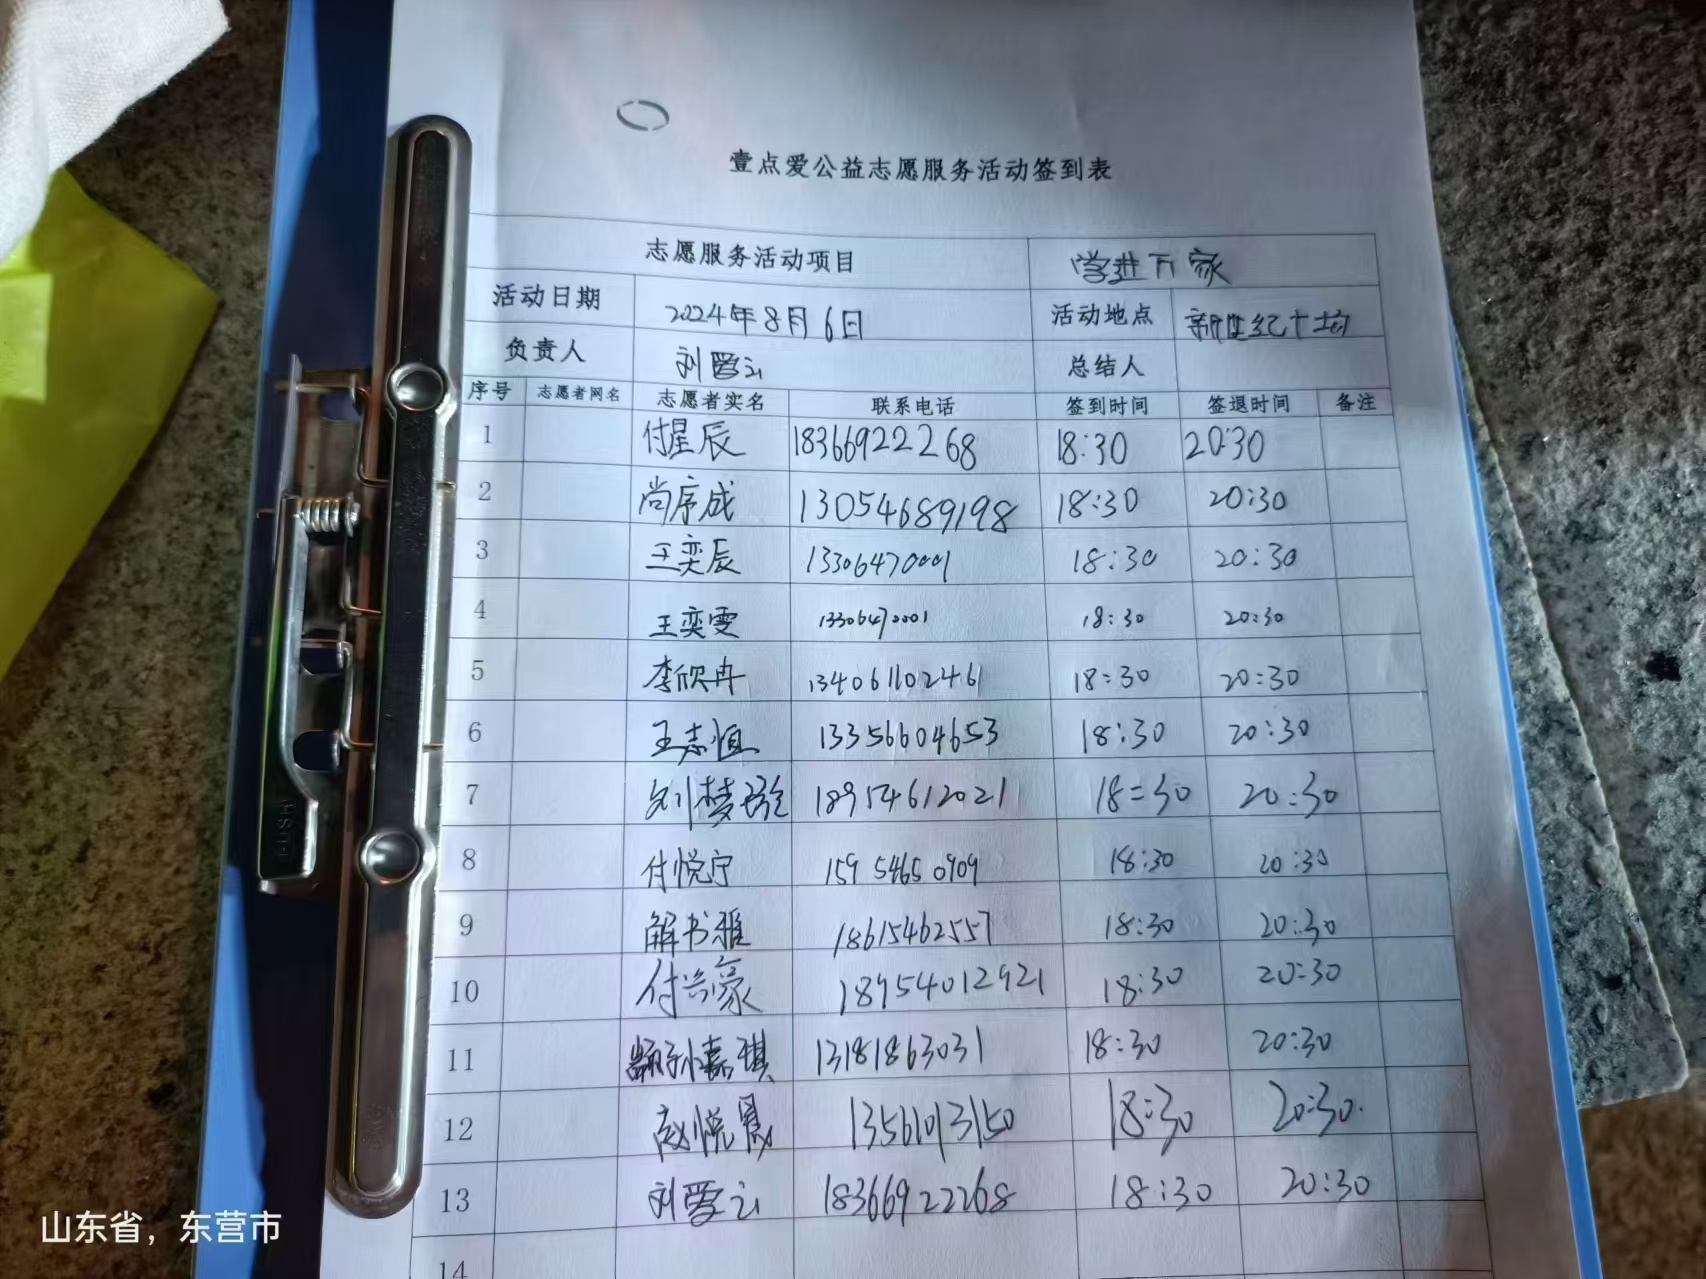 壹点爱公益志愿服务活动签到表
志愿服务活动项目 学进万家
活动日期 2024年8月6日 活动地点 新世纪广场
负责人 刘爱云 总结人
序号 志愿者网名 志愿者实名 联系电话 签到时间 签退时间 备注
1 付星辰 18366922268 18:30 20:30
2 尚序成 13054689198 18:30 20:30
3 王奕辰 13306470001 18:30 20:30
4 王奕雯 13306470001 18:30 20:30
5 李欣冉 134061102461 18:30 20:30
6 王志恒 13356604653 18:30 20:30
7 刘梦 18954612021 18:30 20:30
8 付悦宁 159 5465 0909 18:30 20:30
9 解书雅 18615462557 18:30 20:30
10 付兴豪 18954012921 18:30 20:30
11 嘉琪 13181863031 18:30 20:30
12 赵悦 13561013150 18:30 20:30.
13 刘爱云 18366922268 18:30 20:30
14
PUSH
山东省，东营市